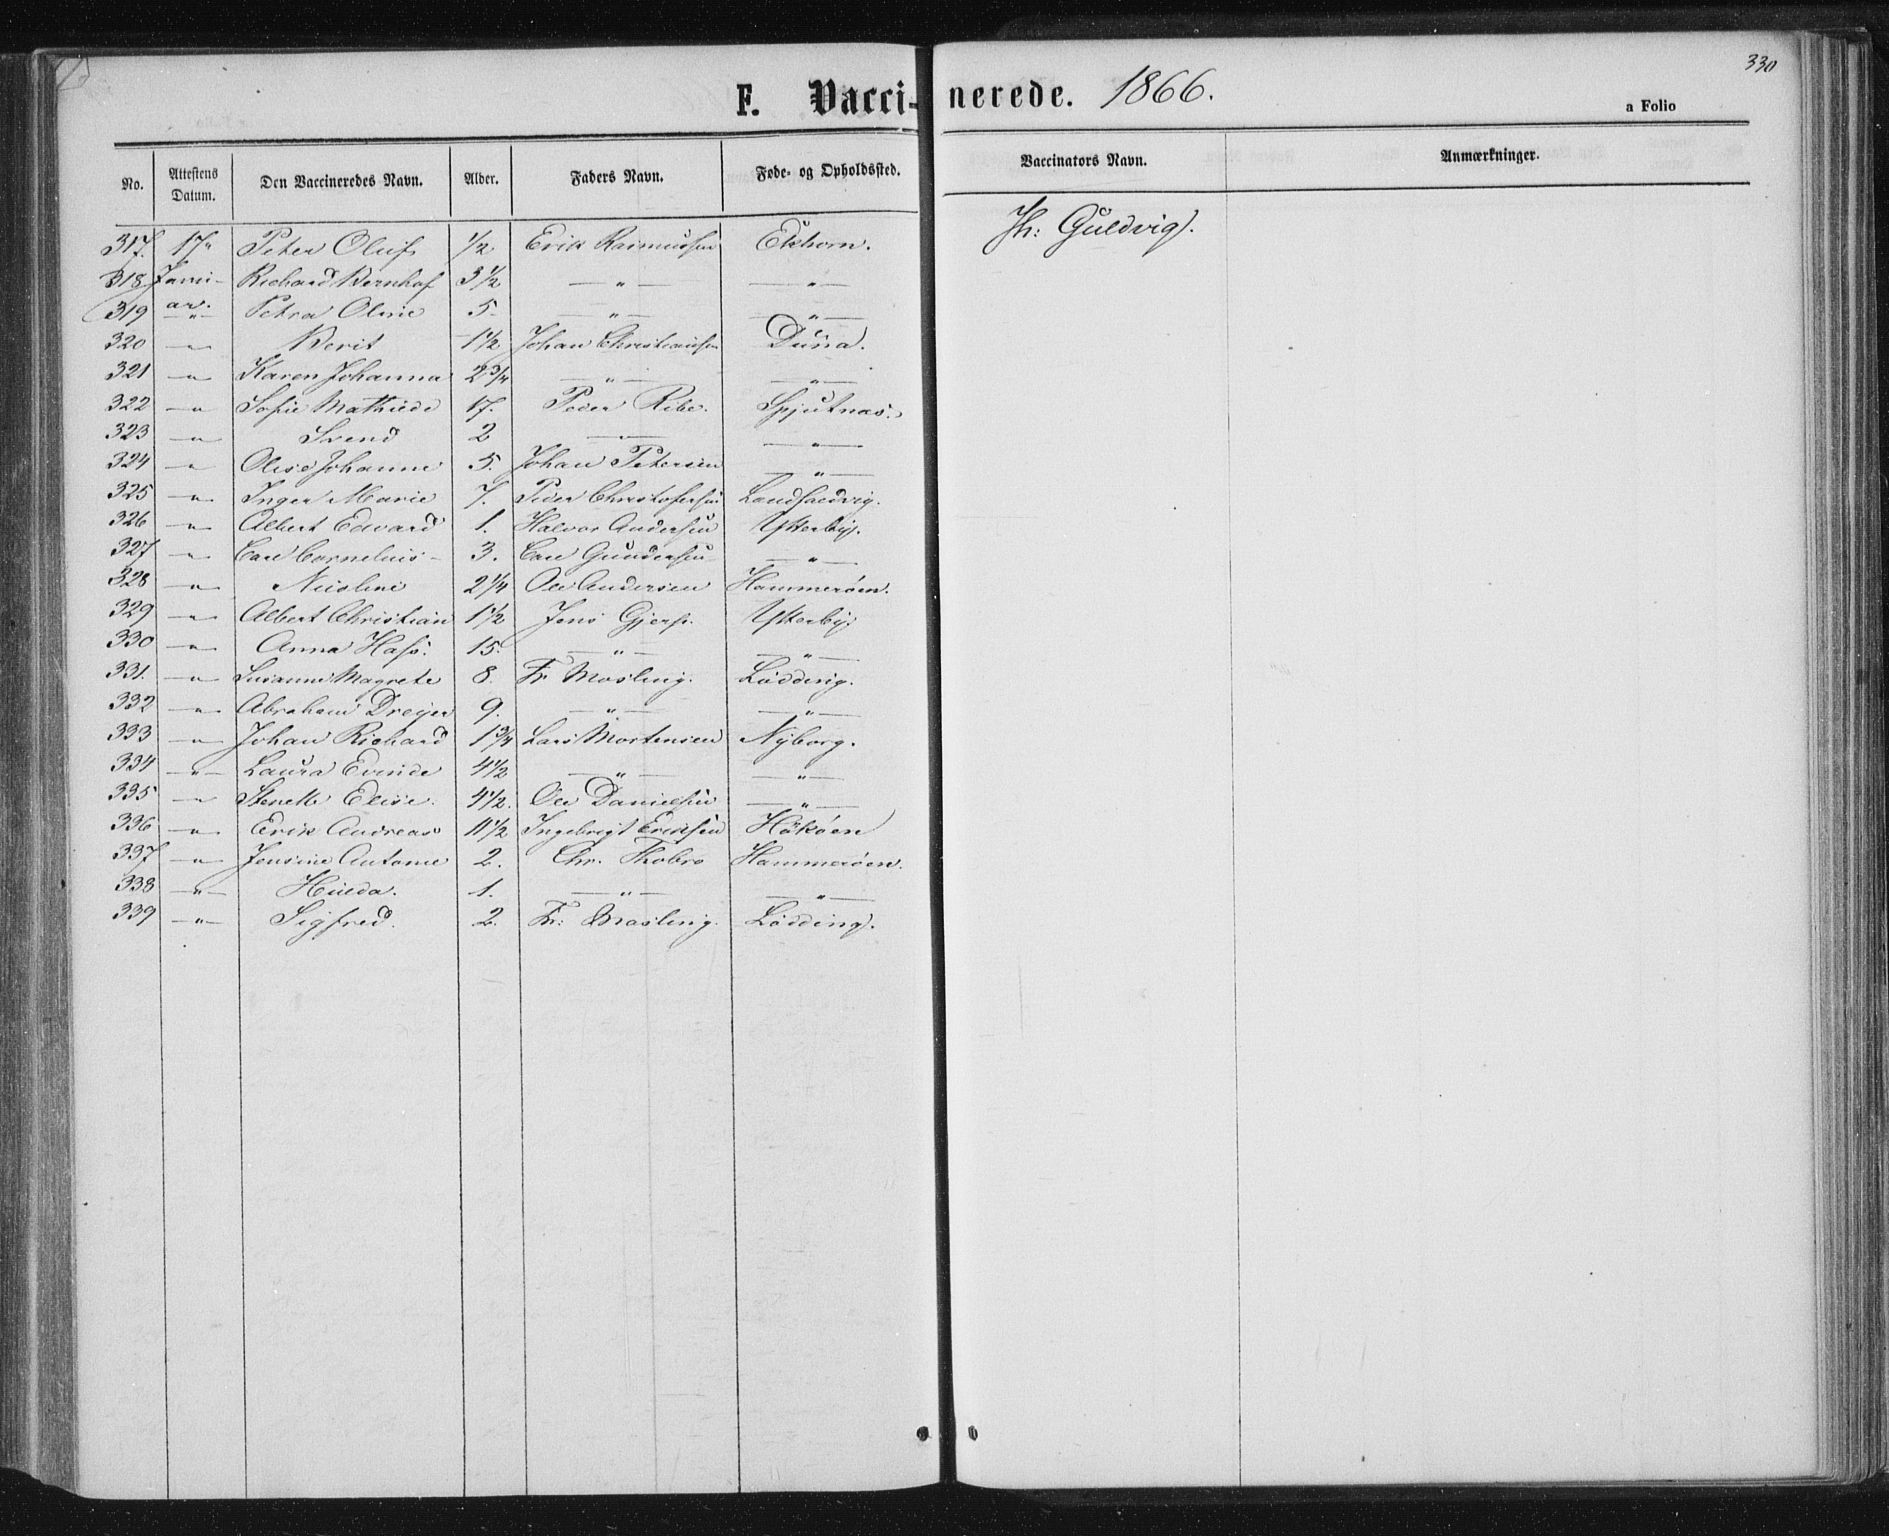 330
F. Vacci-nerede. 1866.
a Folio
No. Attestens Datum. Den Vaccineredes Navn. Alder. Faders Navn. Føde- og Opholdssted. Vaccinators Navn. Anmærkninger.
317. 17de Peter Oluf ½ Erik Rasmussen Ekhorn. Jh: Guldvig.
318 Janu- Richard Bernhof 3½ —"— —"—
319 ar. —"— Petra Oline 5. —"— —"—
320 —"— Berit 1½ Johan Christiansen Duna.
321 —"— Karen Johanna 2¾ —"— —"—
322 —"— Sofie Mathilde 17. Peder Ribe. Spjutnæs.
323 —"— Svend 2 —"— —"—
324 —"— Olise Johanne 5. Johan Petersen —"—
325 —"— Inger Marie 7. Peder Christofersen
326 —"— Albert Edvard 1. Halvor Andersen Ytterby.
327 —"— Carl Cornelius 3. Carl Gundersen —"—
328 —"— 2¼ Ole Andersen Hammerøen.
329 —"— Albert Christian 1½ Jens Gjers. Ytterby.
330 —"— Anna Hass. 15. —"— —"—
331. —"— Susanne Magrete 8. Fr. Mosling. Lødding.
332 —"— Abraham Dreyer 9. —"— —"—
333 —"— Johan Richard 1¾ Lars Mortensen Nyborg.
334 —"— Laura 4½ —"— —"—
335 —"— Elise. 4½. Ole Danielsen —"—
336 —"— Erik Andreas 11½ Ingebrigt Eriksen
337 —"— Jensine Antonie 2. Chr. Thobro Hammerøen.
338 —"— Hulda. 1. —"— —"—
339 —"— Sigfred. 2. Fr: Mosling. Lødding.